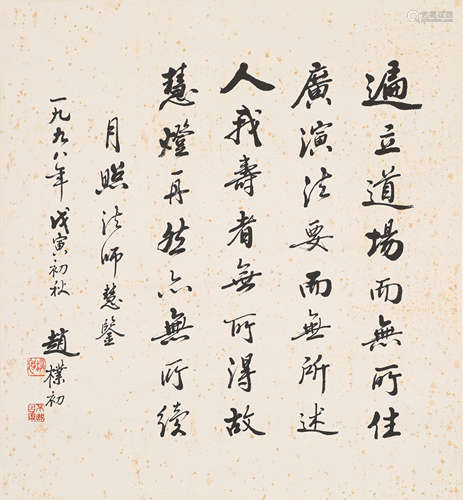 遍立道場而無所住
廣演法要而無所述
人我壽者無所得故
慧燈再然亦無所續
月照法師慧鑒
一九九八年戊寅初秋
趙樸初